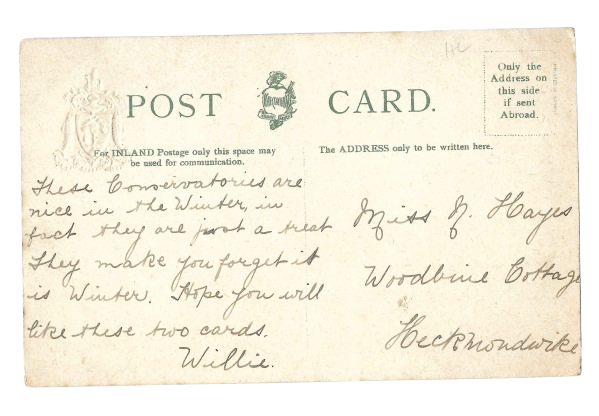 HL
Only the
Address on
this side
if sent
Abroad.
POST CARD.
For INLAND Postage only this space may
be used for communication.
The ADDRESS only to be written here.
These Conservatories are
nice in the Winter, in
fact they are just a treat
They make you forget it
is Winter. Hope you will
like these two cards.
Willie.
Miss N. Hayes
Woodbine Cottage
Heckmondwike